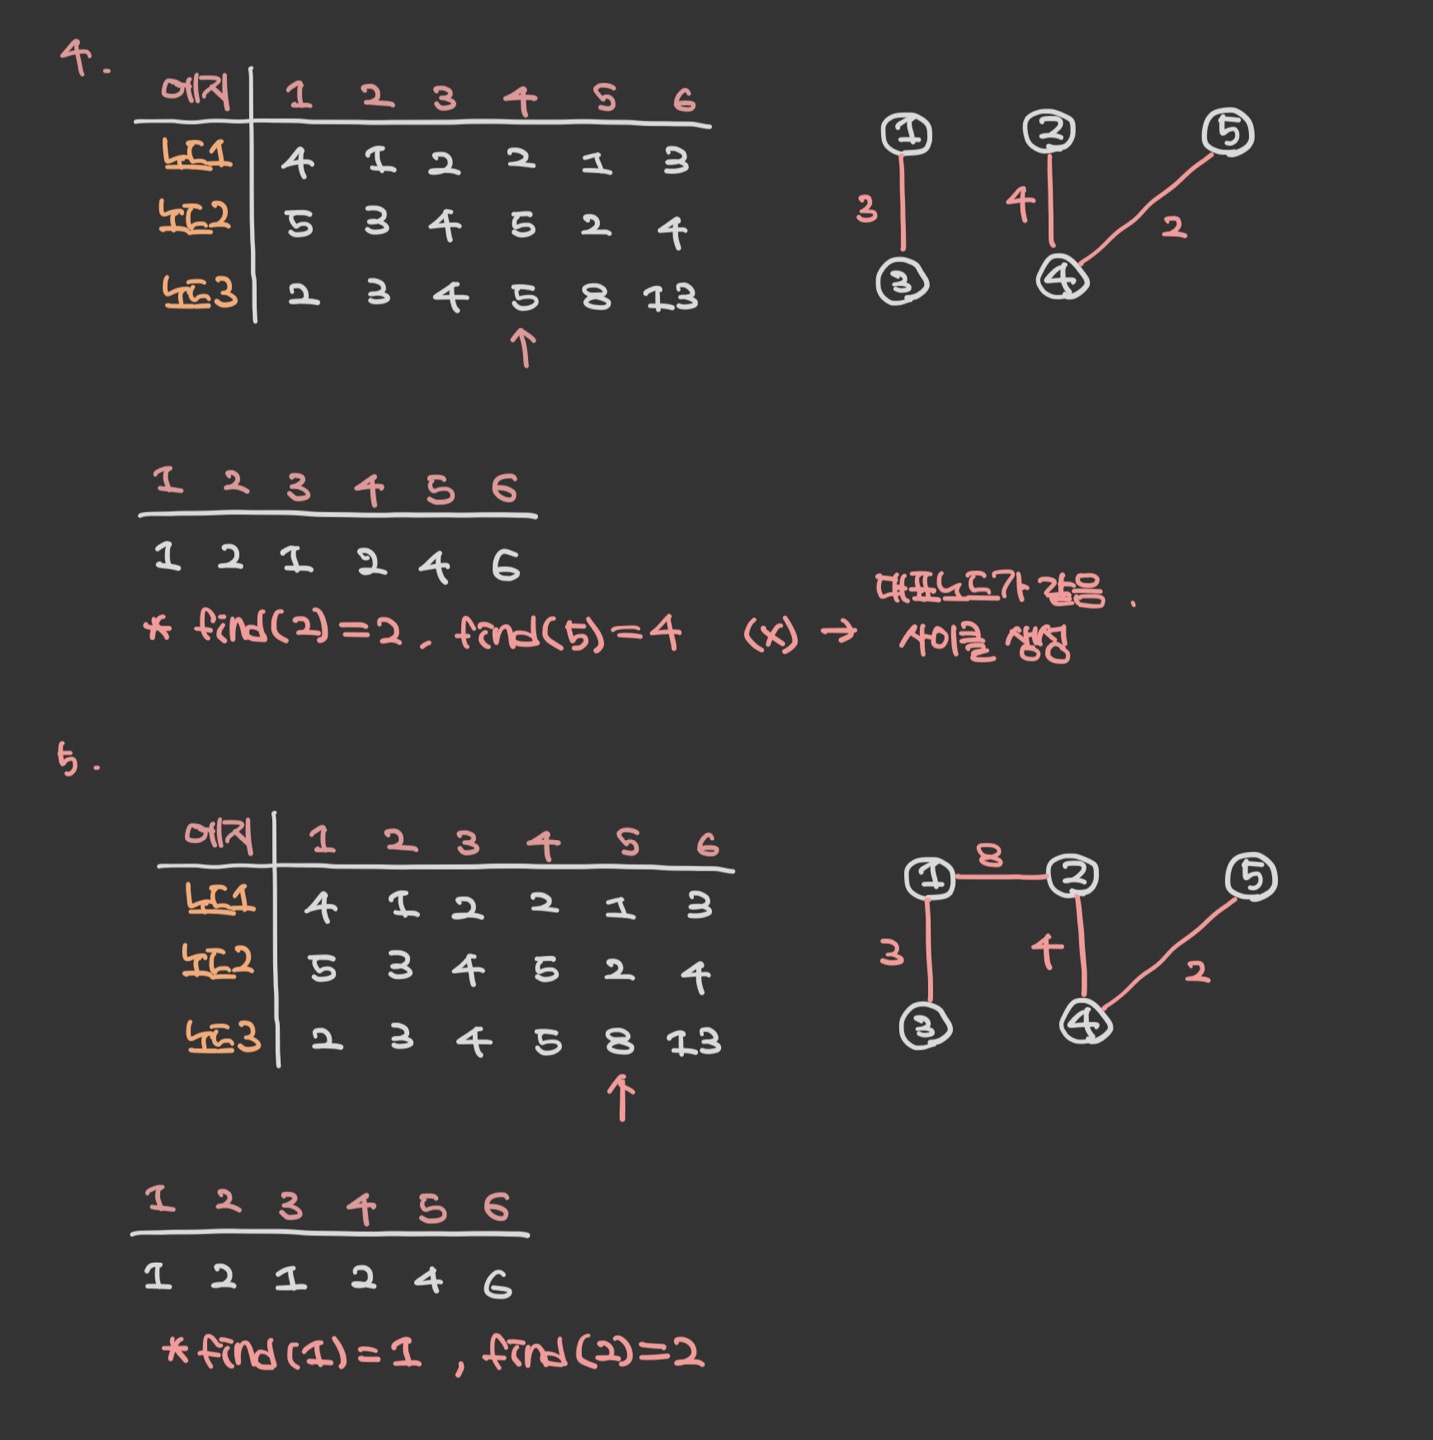 4.
에지 1 2 3 4 5 6
노드1 4 1 2 2 1 3
노드2 5 3 4 5 2 4
노드3 2 3 4 5 8 13
↑
1 2 5
3 4 2
3 4
1 2 3 4 5 6
1 2 1 2 4 6
* find(2)=2, find(5)=4 (x) → 대표노드가 같음.
사이클 생성
5.
에지 1 2 3 4 5 6
노드1 4 1 2 2 1 3
노드2 5 3 4 5 2 4
노드3 2 3 4 5 8 13
↑
8
1 2 5
3 4 2
3 4
1 2 3 4 5 6
1 2 1 2 4 6
*find(1)=1, find(2)=2